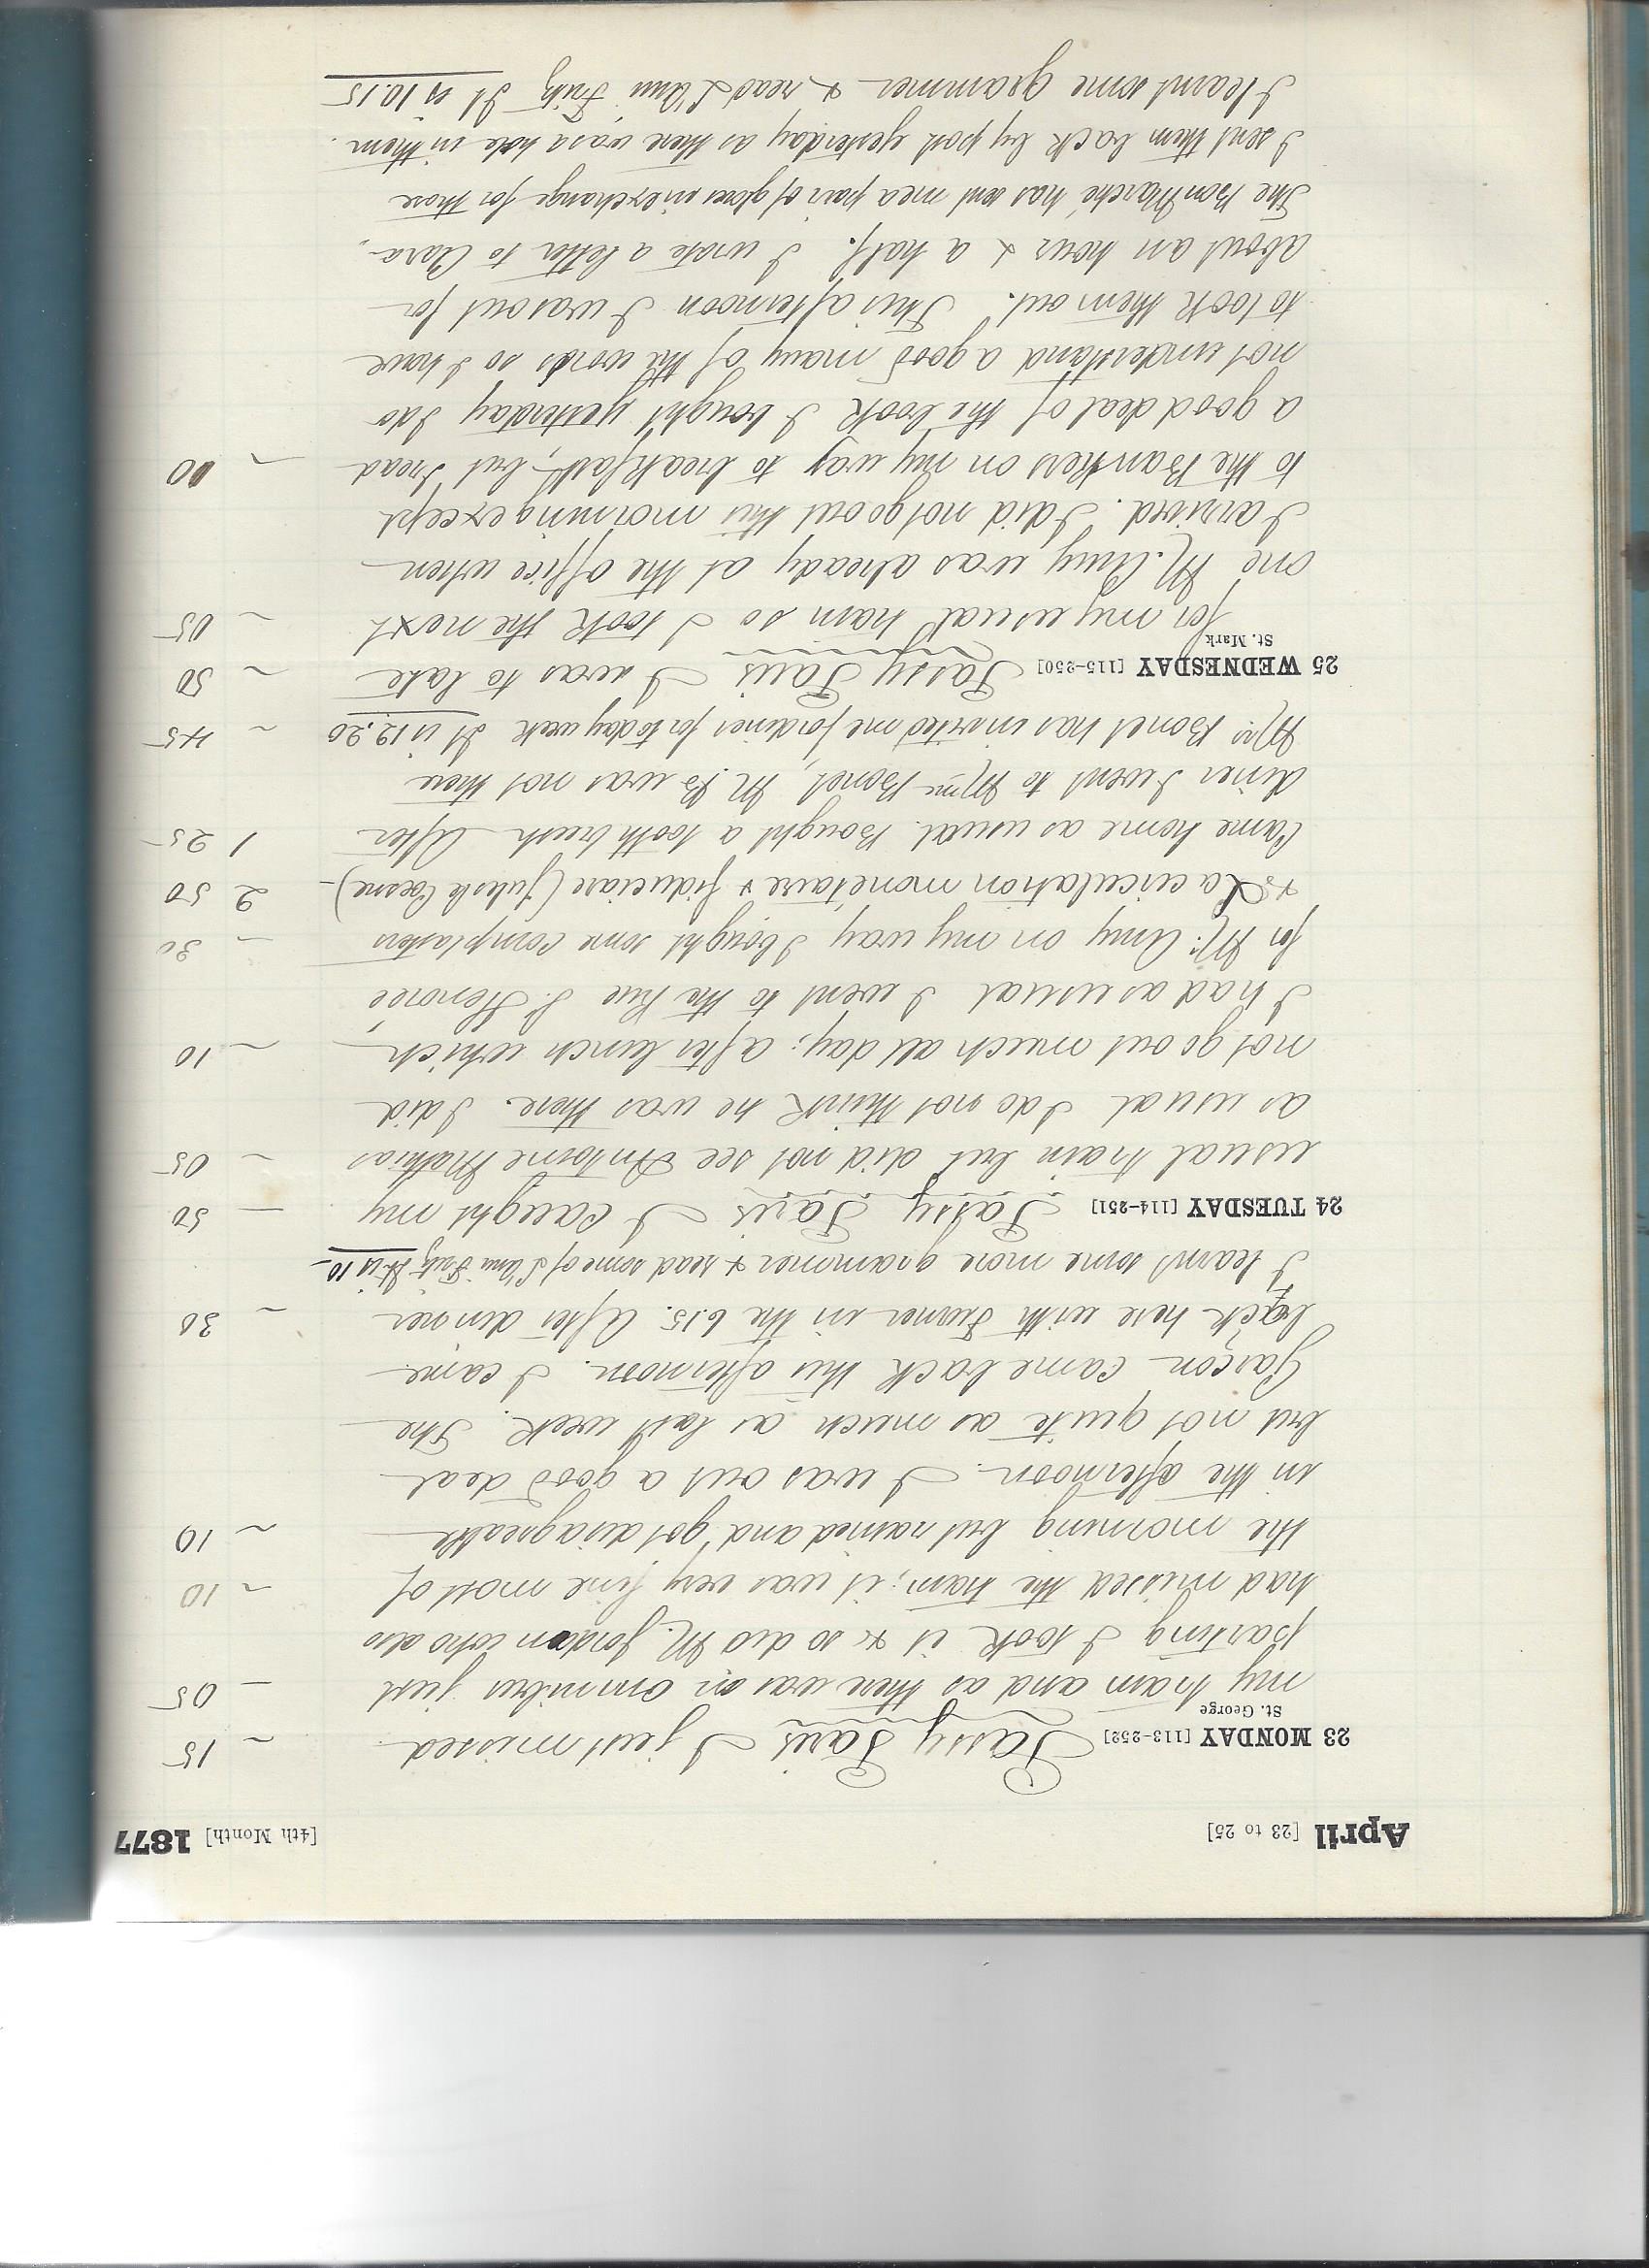 April [23 to 25] [4th Month] 1877
23 MONDAY [113-252] Passy Paris I just missed ~ 15
St. George
my tram and as there was an omnibus just — 05
parting I took it & so did M. Jordan who also
had missed the tram; it was very fine most of ~ 10
the morning but rained and got disagreable ~ 10
in the afternoon. I was out a good deal
but not quite as much as last week. The
Garçon came back this afternoon. I came
back here with Turner in the 6.15. After dinner ~ 30
I learnt some more grammer & read some of L'Ami Fritz It is 10
24 TUESDAY [114-251] Passy Paris I caught my — 50
usual train but did not see Antoine Mathias ~ 05
as usual I do not think he was there. I did
not go out much all day; after lunch which ~ 10
I had as usual I went to the Rue S. Honoree
for M. Amy on my way I bought some cornplasters ~ 30
& La circulation monétaire & fiduciare (Jules le Cesne) 2 50
Came home as usual. Bought a tooth brush After 1 25
diner I went to Mme Bonet, M. B was not there
Mrs Bonet has invited me for diner for today week It is 12.20 ~ 45
25 WEDNESDAY [115-250] Passy Paris I was to late ~ 50
St. Mark
for my usual tram so I took the next ~ 05
one M. Amy was already at the office when
I arrived. I did not go out this morning except
to the Bankers on my way to breakfast, but read ~ 10
a good deal of the book I bought yesterday I do
not understand a good many of the words so I have
to look them out. This afternoon I was out for
about an hour & a half. I wrote a letter to Clara.
The Bon Marché has sent me a pair of gloves in exchange for those
I sent them back by post yesterday as there was a hole in them.
I learnt some grammer & read L'Ami Fritz It is 10.15